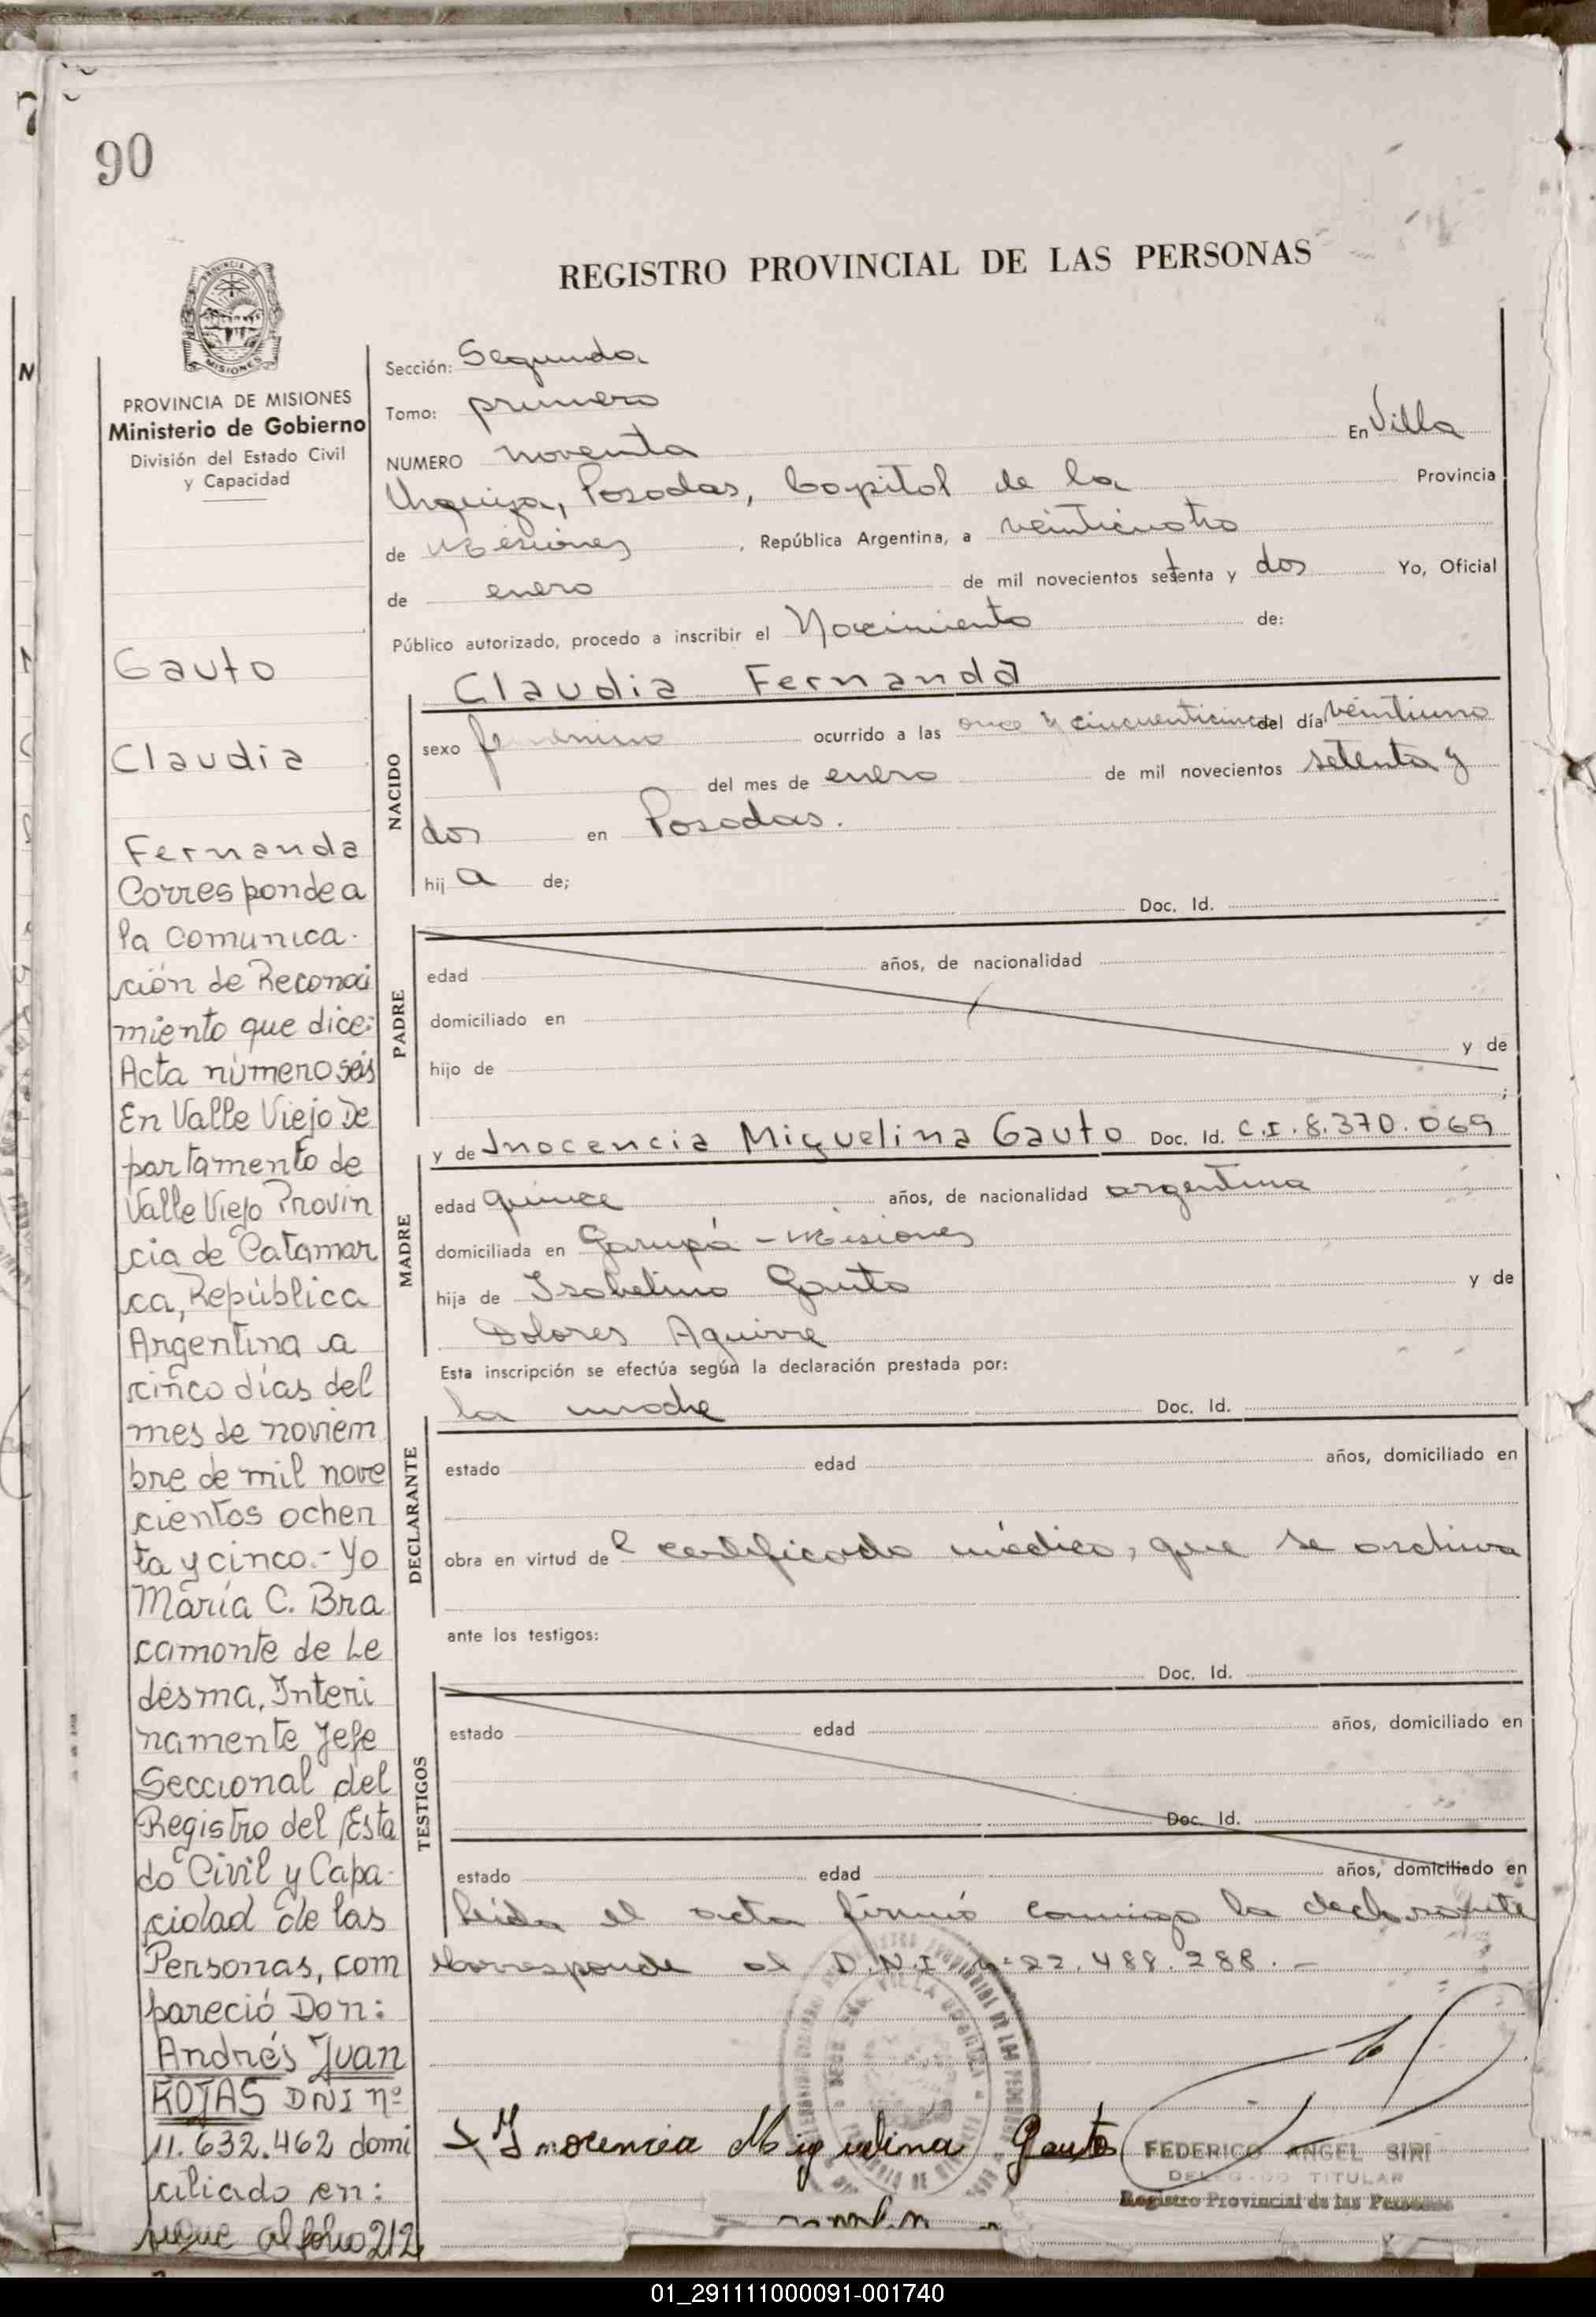 90
REGISTRO PROVINCIAL DE LAS PERSONAS
PROVINCIA DE MISIONES
Ministerio de Gobierno
División del Estado Civil
y Capacidad
Gauto
Claudia
Fernanda
Corresponde a
la Comunica-
ción de Reconoci
miento que dice:
Acta número seis
En Valle Viejo De
partamento de
Valle Viejo Provin
cia de Catamar
ca, República
Argentina a
cinco días del
mes de noviem
bre de mil nove
cientos ochen
ta y cinco.- Yo
María C. Bra
camonte de Le
desma, Interi
namente Jefe
Seccional del
Registro del Esta
do Civil y Capa-
cidad de las
Personas, com
pareció Don:
Andrés Juan
ROJAS DNI nº
11.632.462 domi
ciliado en:
sigue al folio 212
Sección: Segunda
Tomo: primero
NUMERO noventa En Villa
Urquiza, Posadas, Capital de la Provincia
de Misiones, República Argentina, a veinticuatro
de enero de mil novecientos setenta y dos Yo, Oficial
Público autorizado, procedo a inscribir el Nacimiento de:
Claudia Fernanda
NACIDO
sexo femenino ocurrido a las once y cincuenticinco del día veintiuno
del mes de enero de mil novecientos setenta y
dos en Posadas.
hij a de;
Doc. Id.
PADRE
edad años, de nacionalidad
domiciliado en
hijo de y de
;
y de Inocencia Miguelina Gauto Doc. Id. C.I.8.370.069
MADRE
edad quince años, de nacionalidad argentina
domiciliada en Garupá - Misiones
hija de Isabelino Gauto y de
Dolores Aguirre
Esta inscripción se efectúa según la declaración prestada por:
la madre Doc. Id.
DECLARANTE
estado edad años, domiciliado en
obra en virtud de l certificado médico, que se archiva
ante los testigos:
Doc. Id.
TESTIGOS
estado edad años, domiciliado en
Doc. Id.
estado edad años, domiciliado en
Leída el acta firmó conmigo la declarante
Corresponde al D.N.I Nº 22.488.288.-
Inocencia Miguelina Gauto
FEDERICO ANGEL SIRI
DELEGADO TITULAR
Registro Provincial de las Personas
01_291111000091-001740